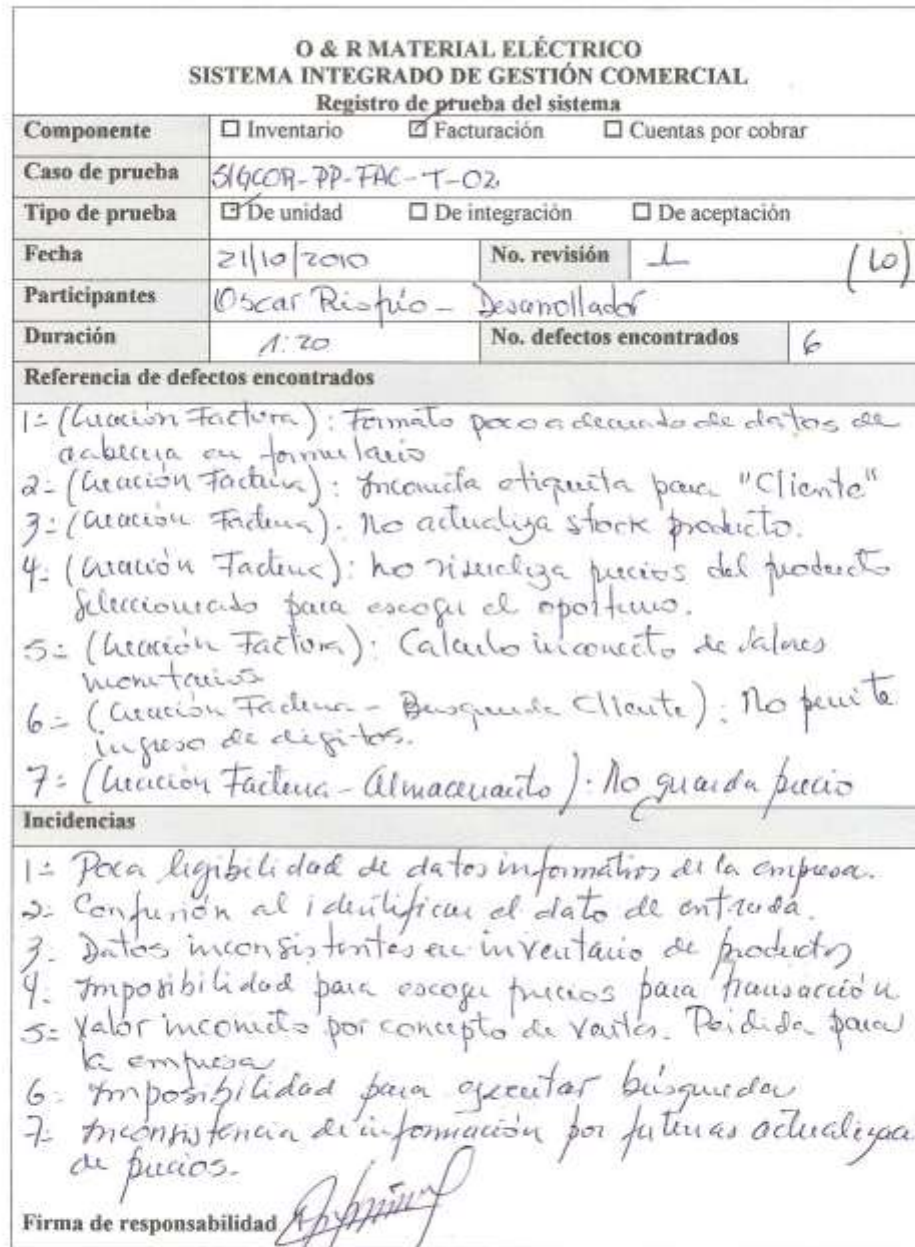 O & R MATERIAL ELÉCTRICO
SISTEMA INTEGRADO DE GESTIÓN COMERCIAL
Registro de prueba del sistema
Componente ☐ Inventario ☑ Facturación ☐ Cuentas por cobrar
Caso de prueba SIGCOR-PP-FAC-T-02
Tipo de prueba ☑ De unidad ☐ De integración ☐ De aceptación
Fecha 21/10/2010 No. revisión 1 (10)
Participantes Oscar - Desarrollador
Duración 1:20 No. defectos encontrados 6
Referencia de defectos encontrados
1= (Creación Factura): Formato poco adecuado de datos de
cabecera en formulario
2= (Creación Factura): Incorrecta etiqueta para "Cliente"
3= (Creación Factura): No actualiza stock producto.
4= (Creación Factura): No visualiza precios del producto
seleccionado para escoger el oportuno.
5= (Creación Factura): Calculo incorrecto de valores
monetarios
6= (Creación Factura - Busqueda Cliente): No permite
ingreso de digitos.
7= (Creación Factura - Almacenamiento): No guarda precio
Incidencias
1= Poca legibilidad de datos informativos de la empresa.
2= Confusión al identificar el dato de entrada.
3= Datos inconsistentes en inventario de productos
4= Imposibilidad para escoger precios para transacción
5= Valor incorrecto por concepto de ventas. Perdida para
la empresa
6= Imposibilidad para ejecutar búsquedas
7= Inconsistencia de información por futuras
de precios.
Firma de responsabilidad